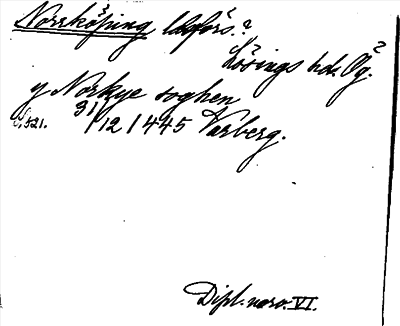 Norrköping ldsförs.?
Lösings hd. Ög.?
y Norkye soghen
S. 521. 31/12 1445 Varberg.
Dipl. norv. VI.